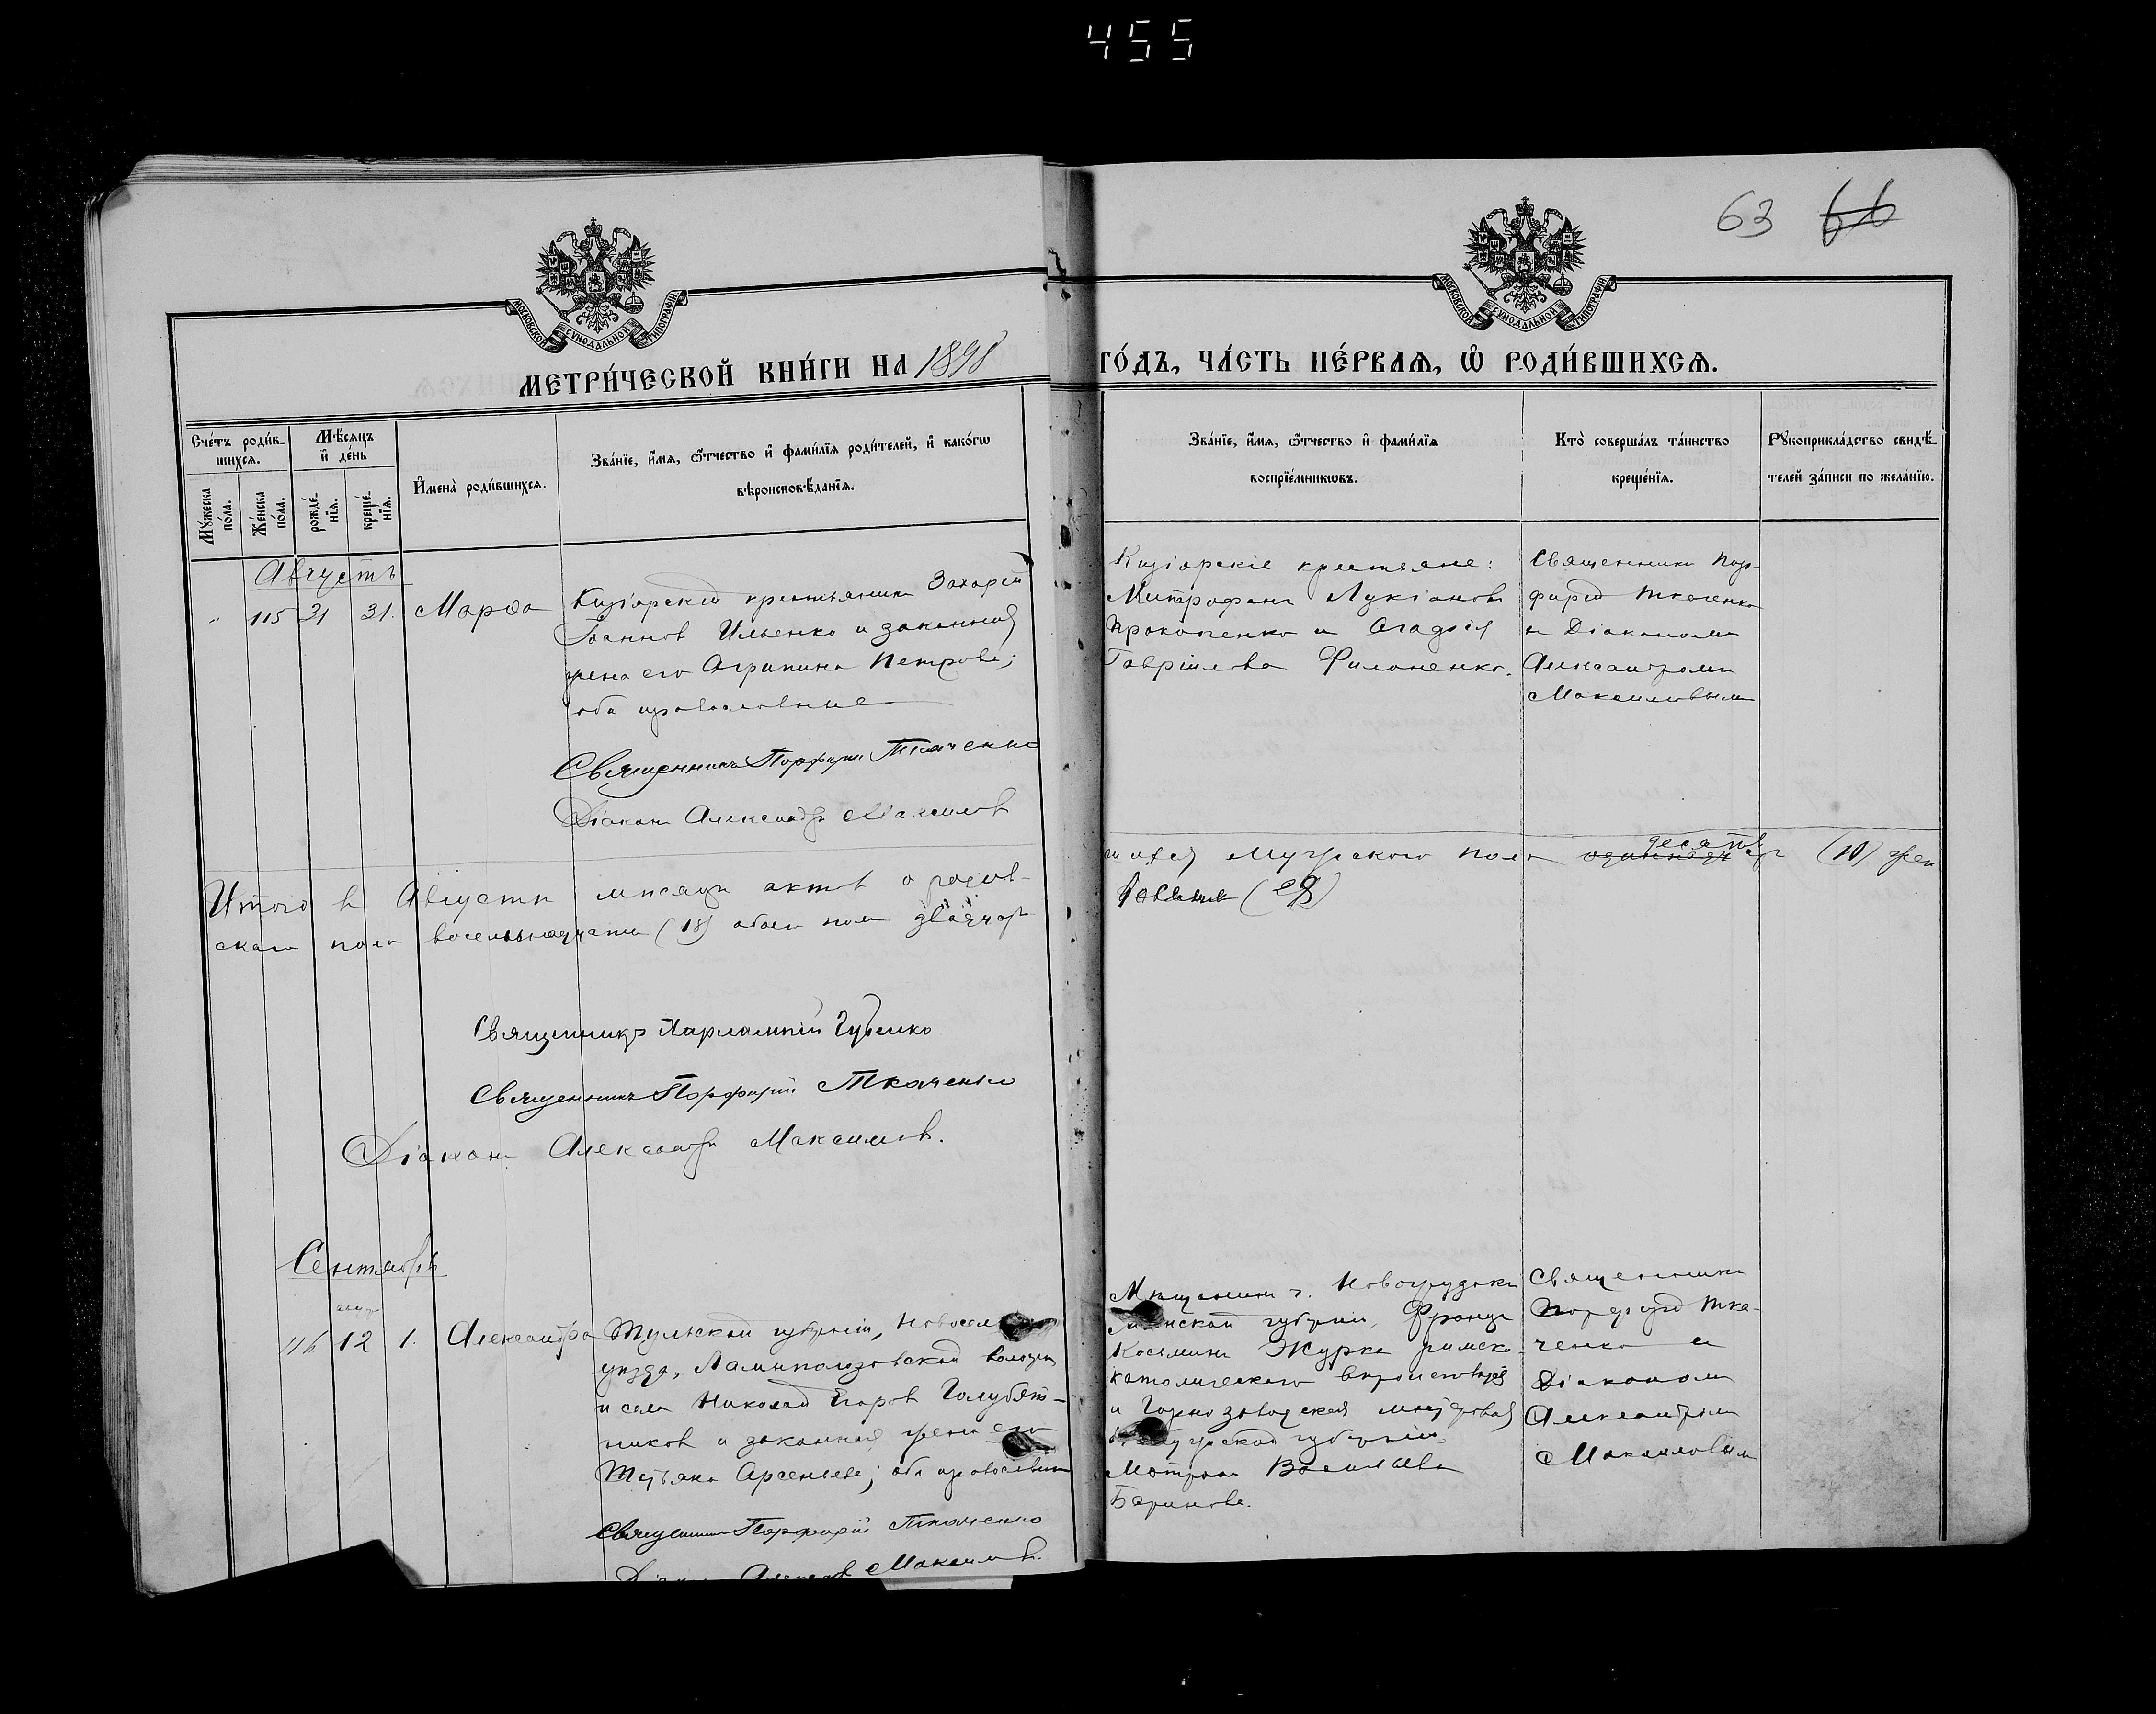 455
63 66
МОСКОВСКОЙ СѴНОДАЛЬНОЙ ТИПОГРАФІИ
МОСКОВСКОЙ СѴНОДАЛЬНОЙ ТИПОГРАФІИ
МЕТРИ́ЧЕСКОЙ КНИ́ГИ НА 1898 ГО́ДЪ, ЧА́СТЬ ПЕ́РВАѦ, Ѡ҆ РОДИ́ВШИХСѦ.
Сче́тъ роди́в-
шихсѧ.
Мѣ́сѧцъ
и҆ де́нь
Мꙋ́жеска
по́ла.
Же́нска
по́ла.
рожде́-
нїѧ.
креще́-
нїѧ.
И҆мена̀ роди́вшихсѧ.
Зва́нїе, и҆́мѧ, ѻ҆́тчество и҆ фами́лїѧ роди́телей, и҆ како́гѡ
вѣроисповѣ́данїѧ.
Зва́нїе, и҆́мѧ, ѻ҆́тчество и҆ фами́лїѧ
воспрїе́мникѡвъ.
Кто̀ соверша́лъ та́инство
креще́нїѧ.
Рꙋкоприкла́дство свидѣ́-
телей за́писи по жела́нїю.
Августъ
115 31 31. Марѳа
крестьянинъ Захарій
Іоанновъ Ильенко и законная
жена его Агрипина Петрова;
оба православные
Священникъ Порфирій Ткаченко
Діаконъ Александръ Максимовъ
крестьяне:
Митрофанъ Лукіановъ
Прокопенко и Агаѳія
Гавріилова Филоненко.
Священникъ Пор-
фирій Ткаченко
и Діакономъ
Александромъ
Максимовымъ
Итого въ Августѣ мѣсяцѣ актовъ о родив-
шихся мужскаго пола одиннадц десять (10) жен
скаго пола восемнадцать (18) обоего пола двадцать
восемь (28)
Священникъ Харлампій Губенко
Священникъ Порфирій Ткаченко
Діаконъ Александръ Максимовъ.
Сентябрь
авгу
116 12 1. Александра
Тульской губерніи, Новосил
уѣзда, волости
и села Николай Егоровъ Голубят-
никовъ и законная жена его
Татьяна Арсеньева; оба православные
Священникъ Порфирій Ткаченко
Діаконъ Александръ Максимовъ.
Мѣщанинъ г. Новогрудка
Минской губерніи, Францъ
Косьминъ Журка римско-
католическаго вѣроисповѣд
и Горнозаводская мастеровая
губерніи,
Матрона Васильева
Баринова.
Священникъ
Порфирій Тка-
ченко и
Діакономъ
Александромъ
Максимовымъ